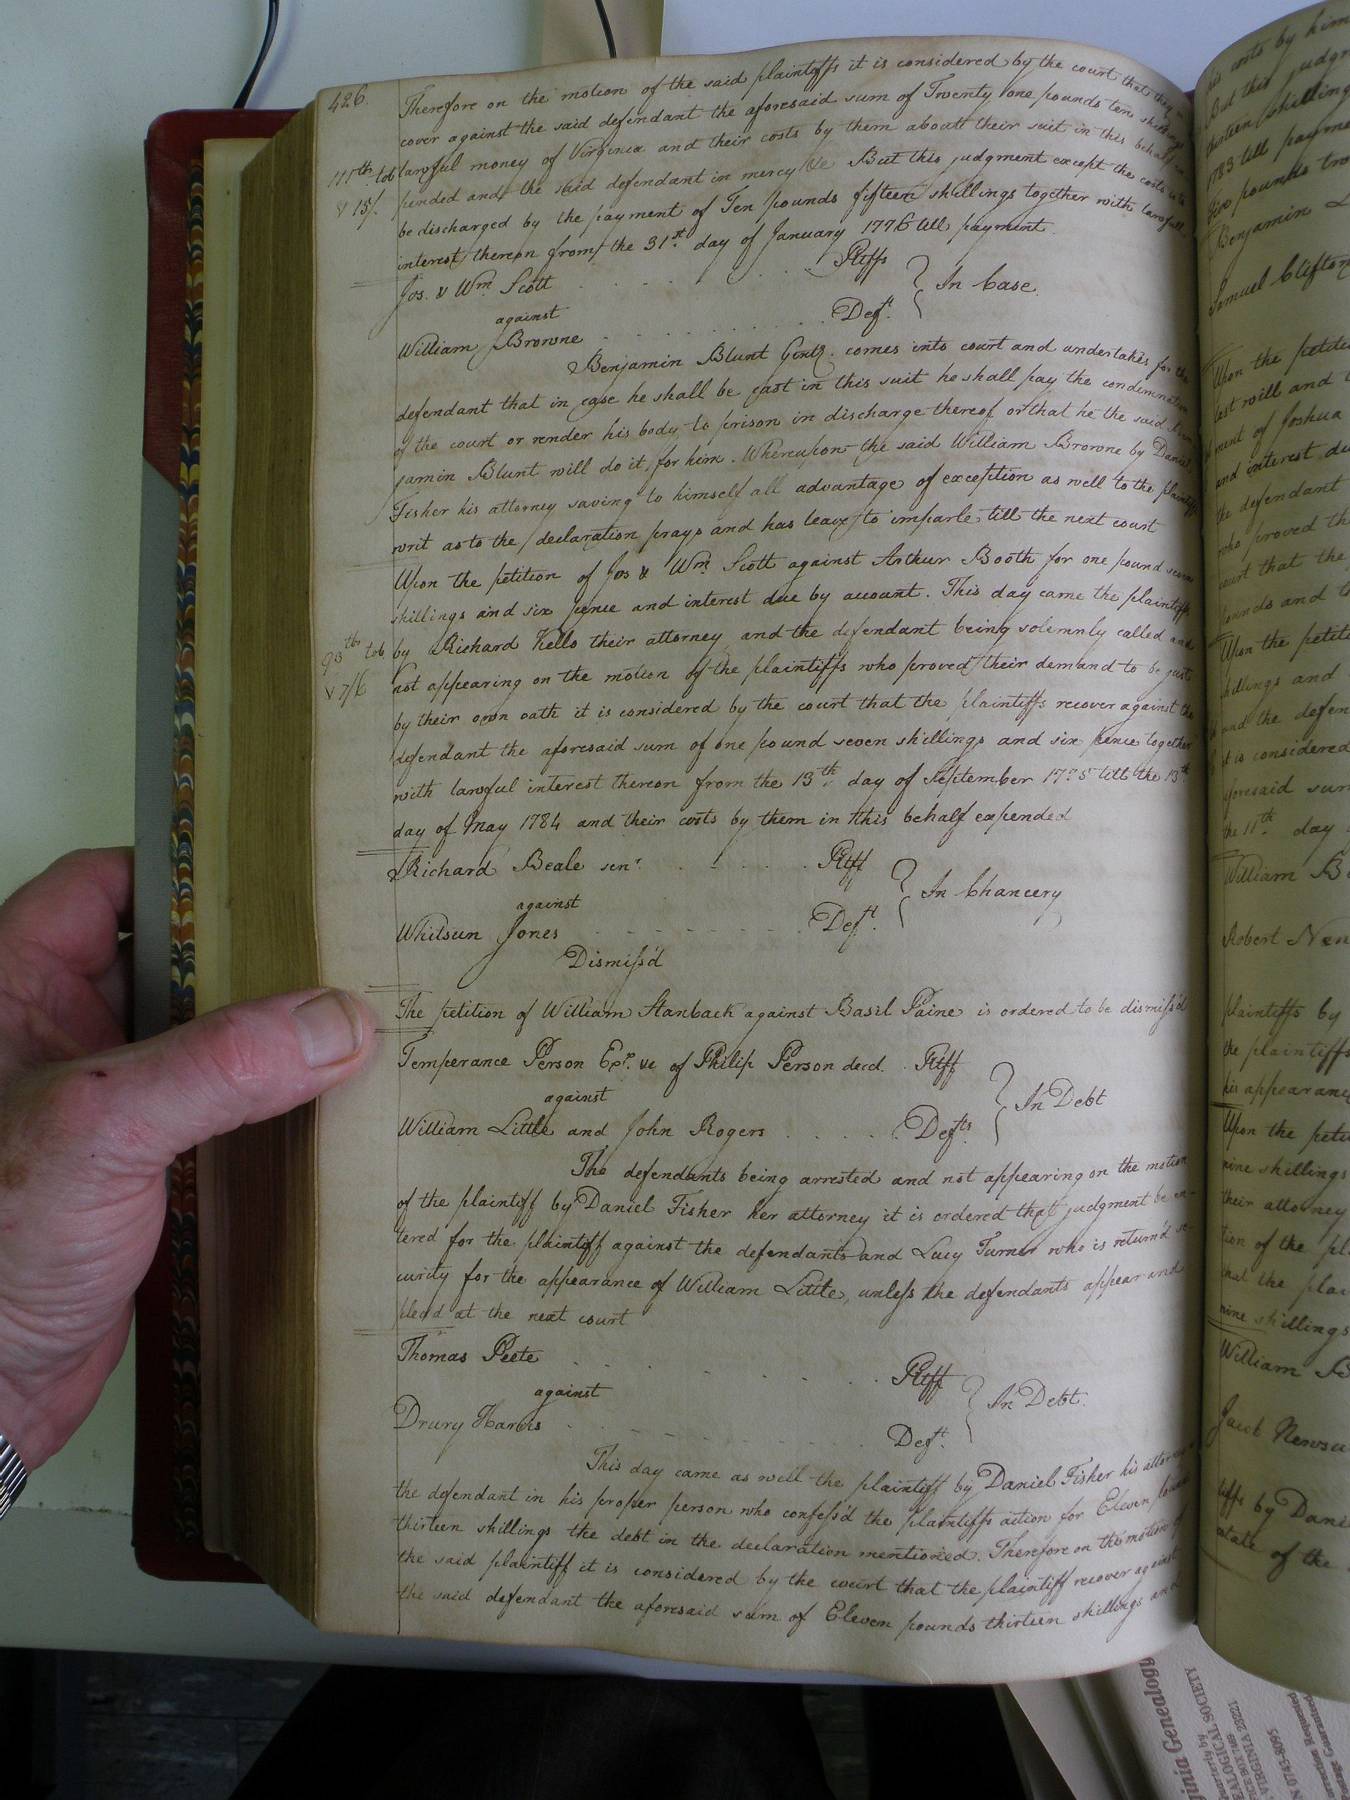 426.
Therefore on the motion of the said plaintiffs it is considered by the court that they re
cover against the said defendant the aforesaid sum of Twenty one pounds ten shillings
lawful money of Virginia and their costs by them about their suit in this behalf ex
pended and the said defendant in mercy &c But this judgment except the costs is to
be discharged by the payment of Ten pounds fifteen shillings together with lawfull
interest thereon from the 31st day of January 1776 till payment.
111th tob
& 15/.
Jos. & Wm Scott Pltffs
against } In Case.
William Browne Deft.
Benjamin Blunt Gentl. comes into court and undertakes for the
defendant that in case he shall be cast in this suit he shall pay the condemnation
of the court or render his body to prison in discharge thereof or that he the said Ben
jamin Blunt will do it for him. Whereupon the said William Browne by Daniel
Fisher his attorney saving to himself all advantage of exception as well to the plaintiffs
writ as to the declaration prays and has leave to imparle till the next court
Upon the petition of Jos & Wm Scott against Arthur Booth for one pound seven
shillings and six pence and interest due by account. This day came the plaintiffs
by Richard Kello their attorney and the defendant being solemnly called and
not appearing on the motion of the plaintiffs who proved their demand to be just
by their own oath it is considered by the court that the plaintiffs recover against the
defendant the aforesaid sum of one pound seven shillings and six pence together
with lawful interest thereon from the 13th day of September 1775 till the 13th
day of May 1784 and their costs by them in this behalf expended
93th tob
& 7/6
Richard Beale senr. Pltff
against } In Chancery
Whitsun Jones Deft.
Dismiss'd
The petition of William Stanback against Basil Paine is ordered to be dismiss'd
Temperance Person Exr. &c of Philip Person decd. Pltff
against } In Debt
William Little and John Rogers Defts.
The defendants being arrested and not appearing on the motion
of the plaintiff by Daniel Fisher her attorney it is ordered that judgment be en-
tered for the plaintiff against the defendants and Lucy Turner who is return'd se-
curity for the appearance of William Little, unless the defendants appear and
plead at the next court
Thomas Peete Pltff
against } In Debt.
Drury Harris Deft.
This day came as well the plaintiff by Daniel Fisher his attorney
the defendant in his proper person who confess'd the plaintiffs action for Eleven pounds
thirteen shillings the debt in the declaration mentioned. Therefore on the motion of
the said plaintiff it is considered by the court that the plaintiff recover against
the said defendant the aforesaid sum of Eleven pounds thirteen shillings and
his costs by him
But this judgm
thirteen shilling
1783 till payme
five pounds
Benjamin
Samuel Clifton
Upon the petiti
last will and
ment of Joshua
and interest du
the defendant
who proved th
court that the
pounds and
Upon the petit
shillings and
and the defen
it is considered
aforesaid sum
the 11th day
William B
Robert New
plaintiffs by
the plaintiffs
his appearanc
Upon the petit
nine shillings
their attorney
tion of the pl
that the plai
nine shillings
William B
Jacob Newsu
tiffs by Dani
estate of the
inia Genealogy
uarterly by
EALOGICAL SOCIETY
ICE BOX 7469
VIRGINIA 23221
N 0743-8095
orrection Requested
ostage Guaranteed